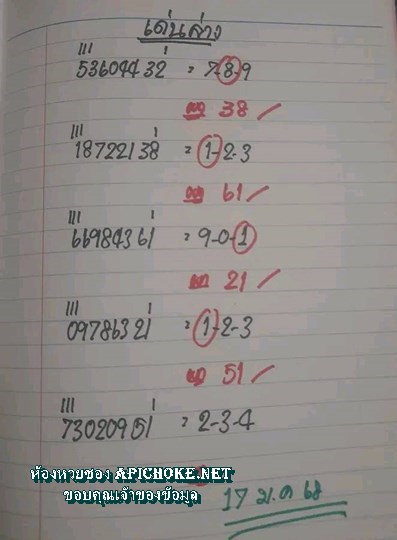 เด่นล่าง
53604432 = 7-8-9
38
18722138 = 1-2-3
61
66984361 = 9-0-1
21
09786321 = 1-2-3
51
73020951 = 2-3-4
ห้องหวยซอง APICHOKE.NET
ขอบคุณเจ้าของข้อมูล
17 ม.ค 68